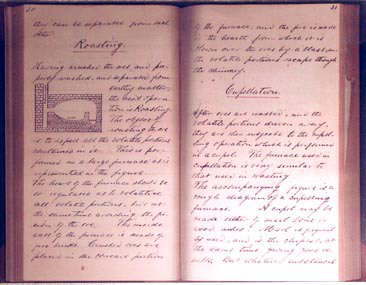 30
they can be separated from each
other
Roasting.
Having crushed the ore and pro-
perly washed, and separated from
earthy matter,
the next opera-
tion is Roasting.
The object of
roasting the ore
is to expell all the volatile portions
contained in it. This is per-
formed in a large furnace as is
represented in the figure.
The heat of the furnace should be
so regulated as to volatilize
all volatile portions, but at
the same time avoiding the fu-
sion of the ore. The inside
wall of the furnace is made of
fire brick. Crushed ores are
placed in the concave portion
31
of the furnace, and the fire is made
on the hearth from which it is
blown over the ores by a blast, and
the volatile portions escape through
the chimney.
Cupellation.
After ores are roasted, and the
volatile portions driven away,
they are then subjected to the cupel-
ling operation which is performed
in a cupel. The furnace used in
cupellation is very similar to
that used in roasting
The accompanying figure is a
rough diagram of a cupelling
furnace. A cupel may be
made either of marl, bone or
wood ashes. Marl is generally
used, and is the cheapest, at
the same time giving good re-
sults. But whatever substance is